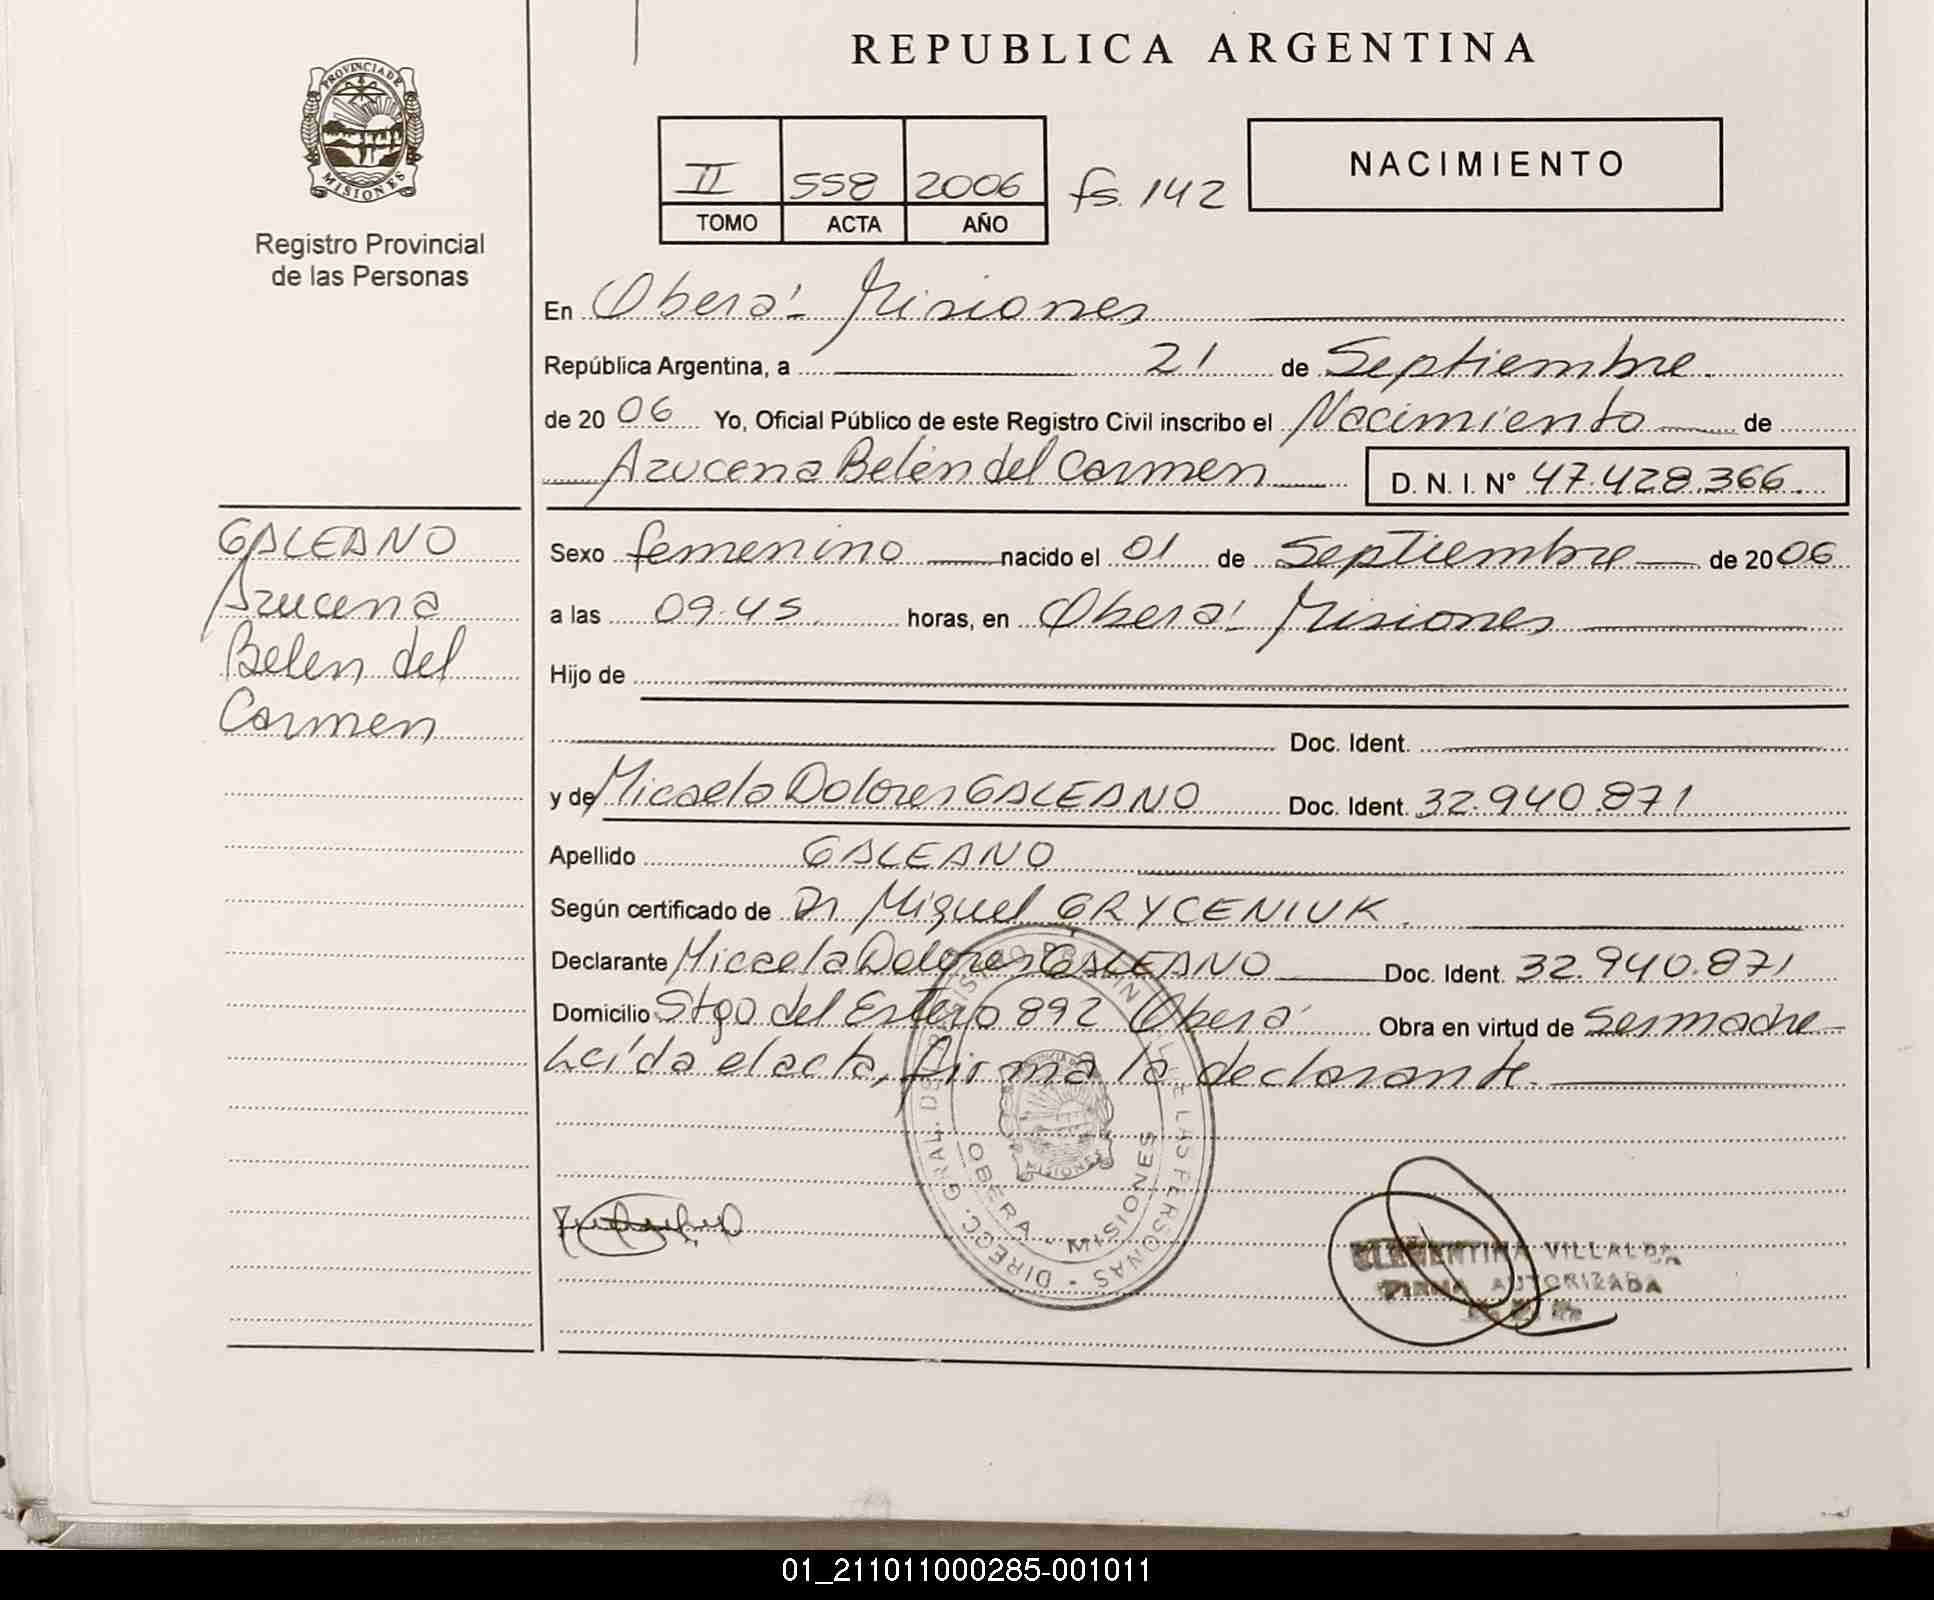 REPUBLICA ARGENTINA
PROVINCIA DE
MISIONES
Registro Provincial
de las Personas
II 558 2006 fs. 142
TOMO ACTA AÑO
NACIMIENTO
En Oberá - Misiones
República Argentina, a 21 de Septiembre.
de 2006 Yo, Oficial Público de este Registro Civil inscribo el Nacimiento de
Azucena Belén del Carmen D. N. I. Nº 47.428.366.
GALEANO
Azucena
Belen del
Carmen
Sexo femenino nacido el 01 de Septiembre de 2006
a las 09.45 horas, en Oberá - Misiones
Hijo de
Doc. Ident.
y de Micaela Dolores GALEANO Doc. Ident. 32.940.871
Apellido GALEANO
Según certificado de Dr Miguel GRYCENIUK.
Declarante Micaela Dolores GALEANO Doc. Ident. 32.940.871
Domicilio Stgo del Estero 892 Oberá Obra en virtud de Ser madre
Leída el acta, firma la declarante.
DIRECC. GRAL. DE LAS PERSONAS
OBERA - MISIONES
CLEMENTINA VILLALBA
FIRMA AUTORIZADA
01_211011000285-001011